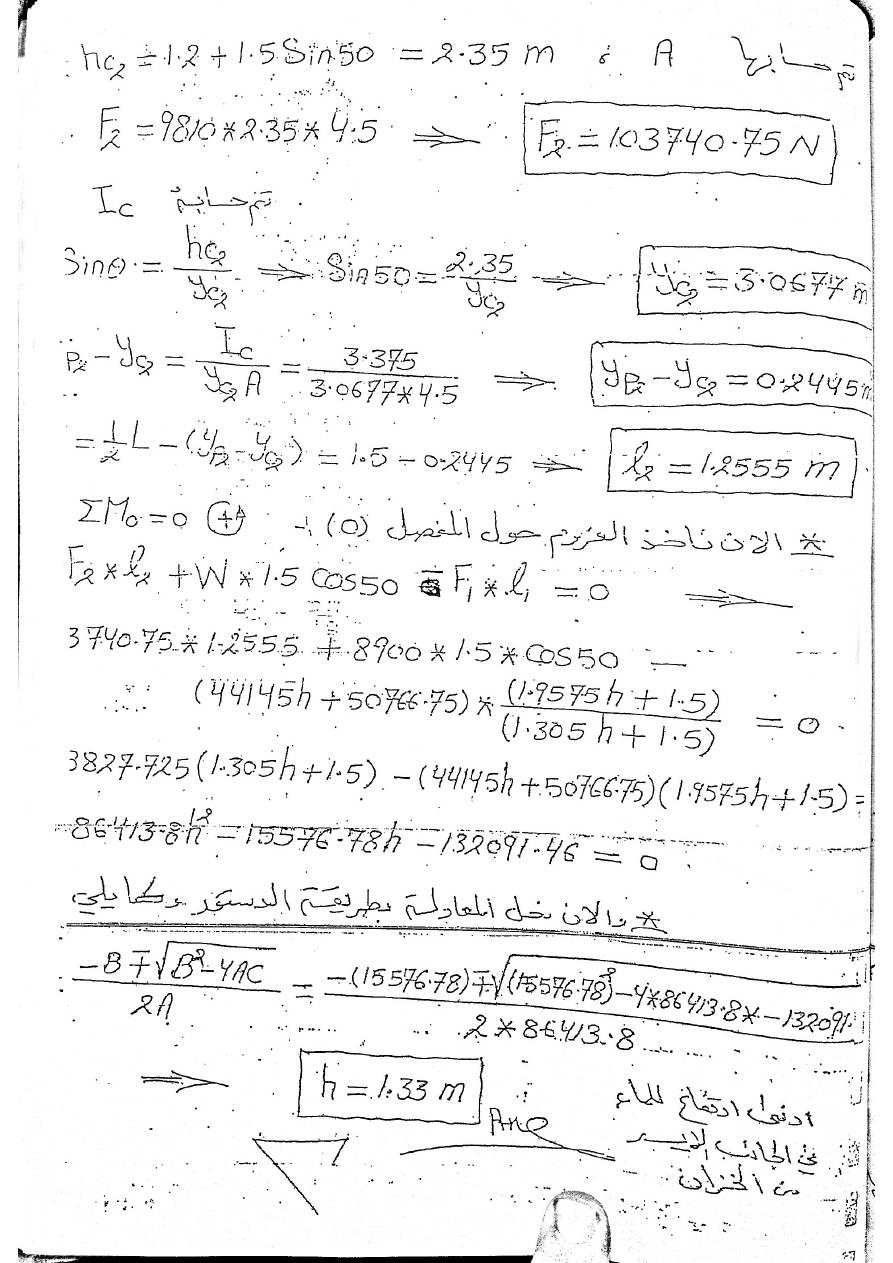 hc₂ = 1.2 + 1.5 Sin 50 = 2.35 m ، A تم حسابها
F₂ = 9810 * 2.35 * 4.5 ⟹ F₂ = 103740.75 N
Ic تم حسابه
Sinθ = hc₂/yc₂ ⟹ Sin 50 = 2.35/yc₂ ⟹ yc₂ = 3.0677 m
P₂ - yc₂ = Ic/(yc₂ A) = 3.375/(3.0677*4.5) ⟹ yP₂ - yc₂ = 0.2445 m
= 1/2 L - (yP₂ - yc₂) = 1.5 - 0.2445 ⟹ l₂ = 1.2555 m
* الان ناخذ العزوم حول المفصل (o) :- ΣMo = 0 ↻+
F₂ * l₂ + W * 1.5 Cos 50 - F₁ * l₁ = 0 ⟹
3740.75 * 1.2555 + 8900 * 1.5 * Cos 50 —
(44145h + 50766.75) * (1.9575h + 1.5)/(1.305h + 1.5) = 0
3827.725(1.305h + 1.5) - (44145h + 50766.75)(1.9575h + 1.5) =
86413.8h² = 15576.78h - 132091.46 = 0
* والان نحل المعادلة بطريقة الدستور وكما يلي
(-B ∓ √(B² - 4AC))/2A = (-(15576.78) ∓ √((15576.78)² - 4*86413.8* - 132091.))/(2 * 86413.8)
⟹ h = 1.33 m
Ans
ادنى ارتفاع للماء
في الجانب الايسر
من الخزان